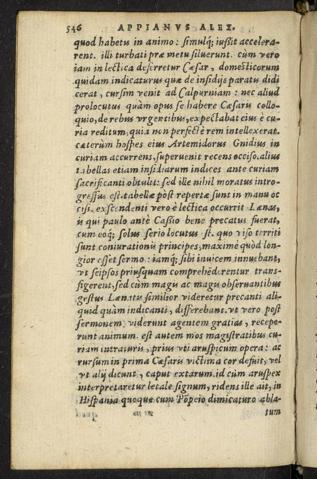 546 APPIANVS ALEX.
quod habetis in animo: simulq; iussit accelera-
rent. illi turbati præ metu siluerunt. cùm vero
iam in lectica deferretur Cæsar, domesticorum
quidam indicaturus quæ de insidijs paratu didi
cerat, cursim venit ad Calpurniam: nec aliud
prolocutus quàm opus se habere Cæsaris collo-
quio, de rebus vrgentibus, expectabat eius è cu-
ria reditum, quia non perfectè rem intellexerat.
cæterùm hospes eius Artemidorus Gnidius in
curiam accurrens, superuenit recens occiso. alius
tabellas etiam insidiarum indices ante curiam
sacrificanti obtulit: sed ille nihil moratus intro-
gressus est. tabellæ pòst repertæ sunt in manu oc
cisi. exscendenti verò è lectica occurrit Lænas,
is qui paulo antè Cassio bene precatus fuerat,
cum eoq; solus serio locutus est. quo viso territi
sunt coniurationis principes, maximè quòd lon-
gior esset sermo: iamq; sibi inuicem innuebant,
vt seipsos priusquam comprehēderentur trans-
figerent. sed cùm magis ac magis obseruantibus
gestus Lænatis similior videretur precanti ali-
quid quàm indicanti, differebant. vt vero post
sermonem viderunt agentem gratias, recepe-
runt animum. est autem mos magistratibus cu-
riam intraturis, prius vti aruspicum opera: ac
rursum in prima Cæsaris victima cor defuit, vel
vt alij dicunt, caput extarum. id cùm aruspex
interpretaretur letale signum, ridens ille ait, in
Hispania quoque cum Pōpeio dimicaturo abla-
tum